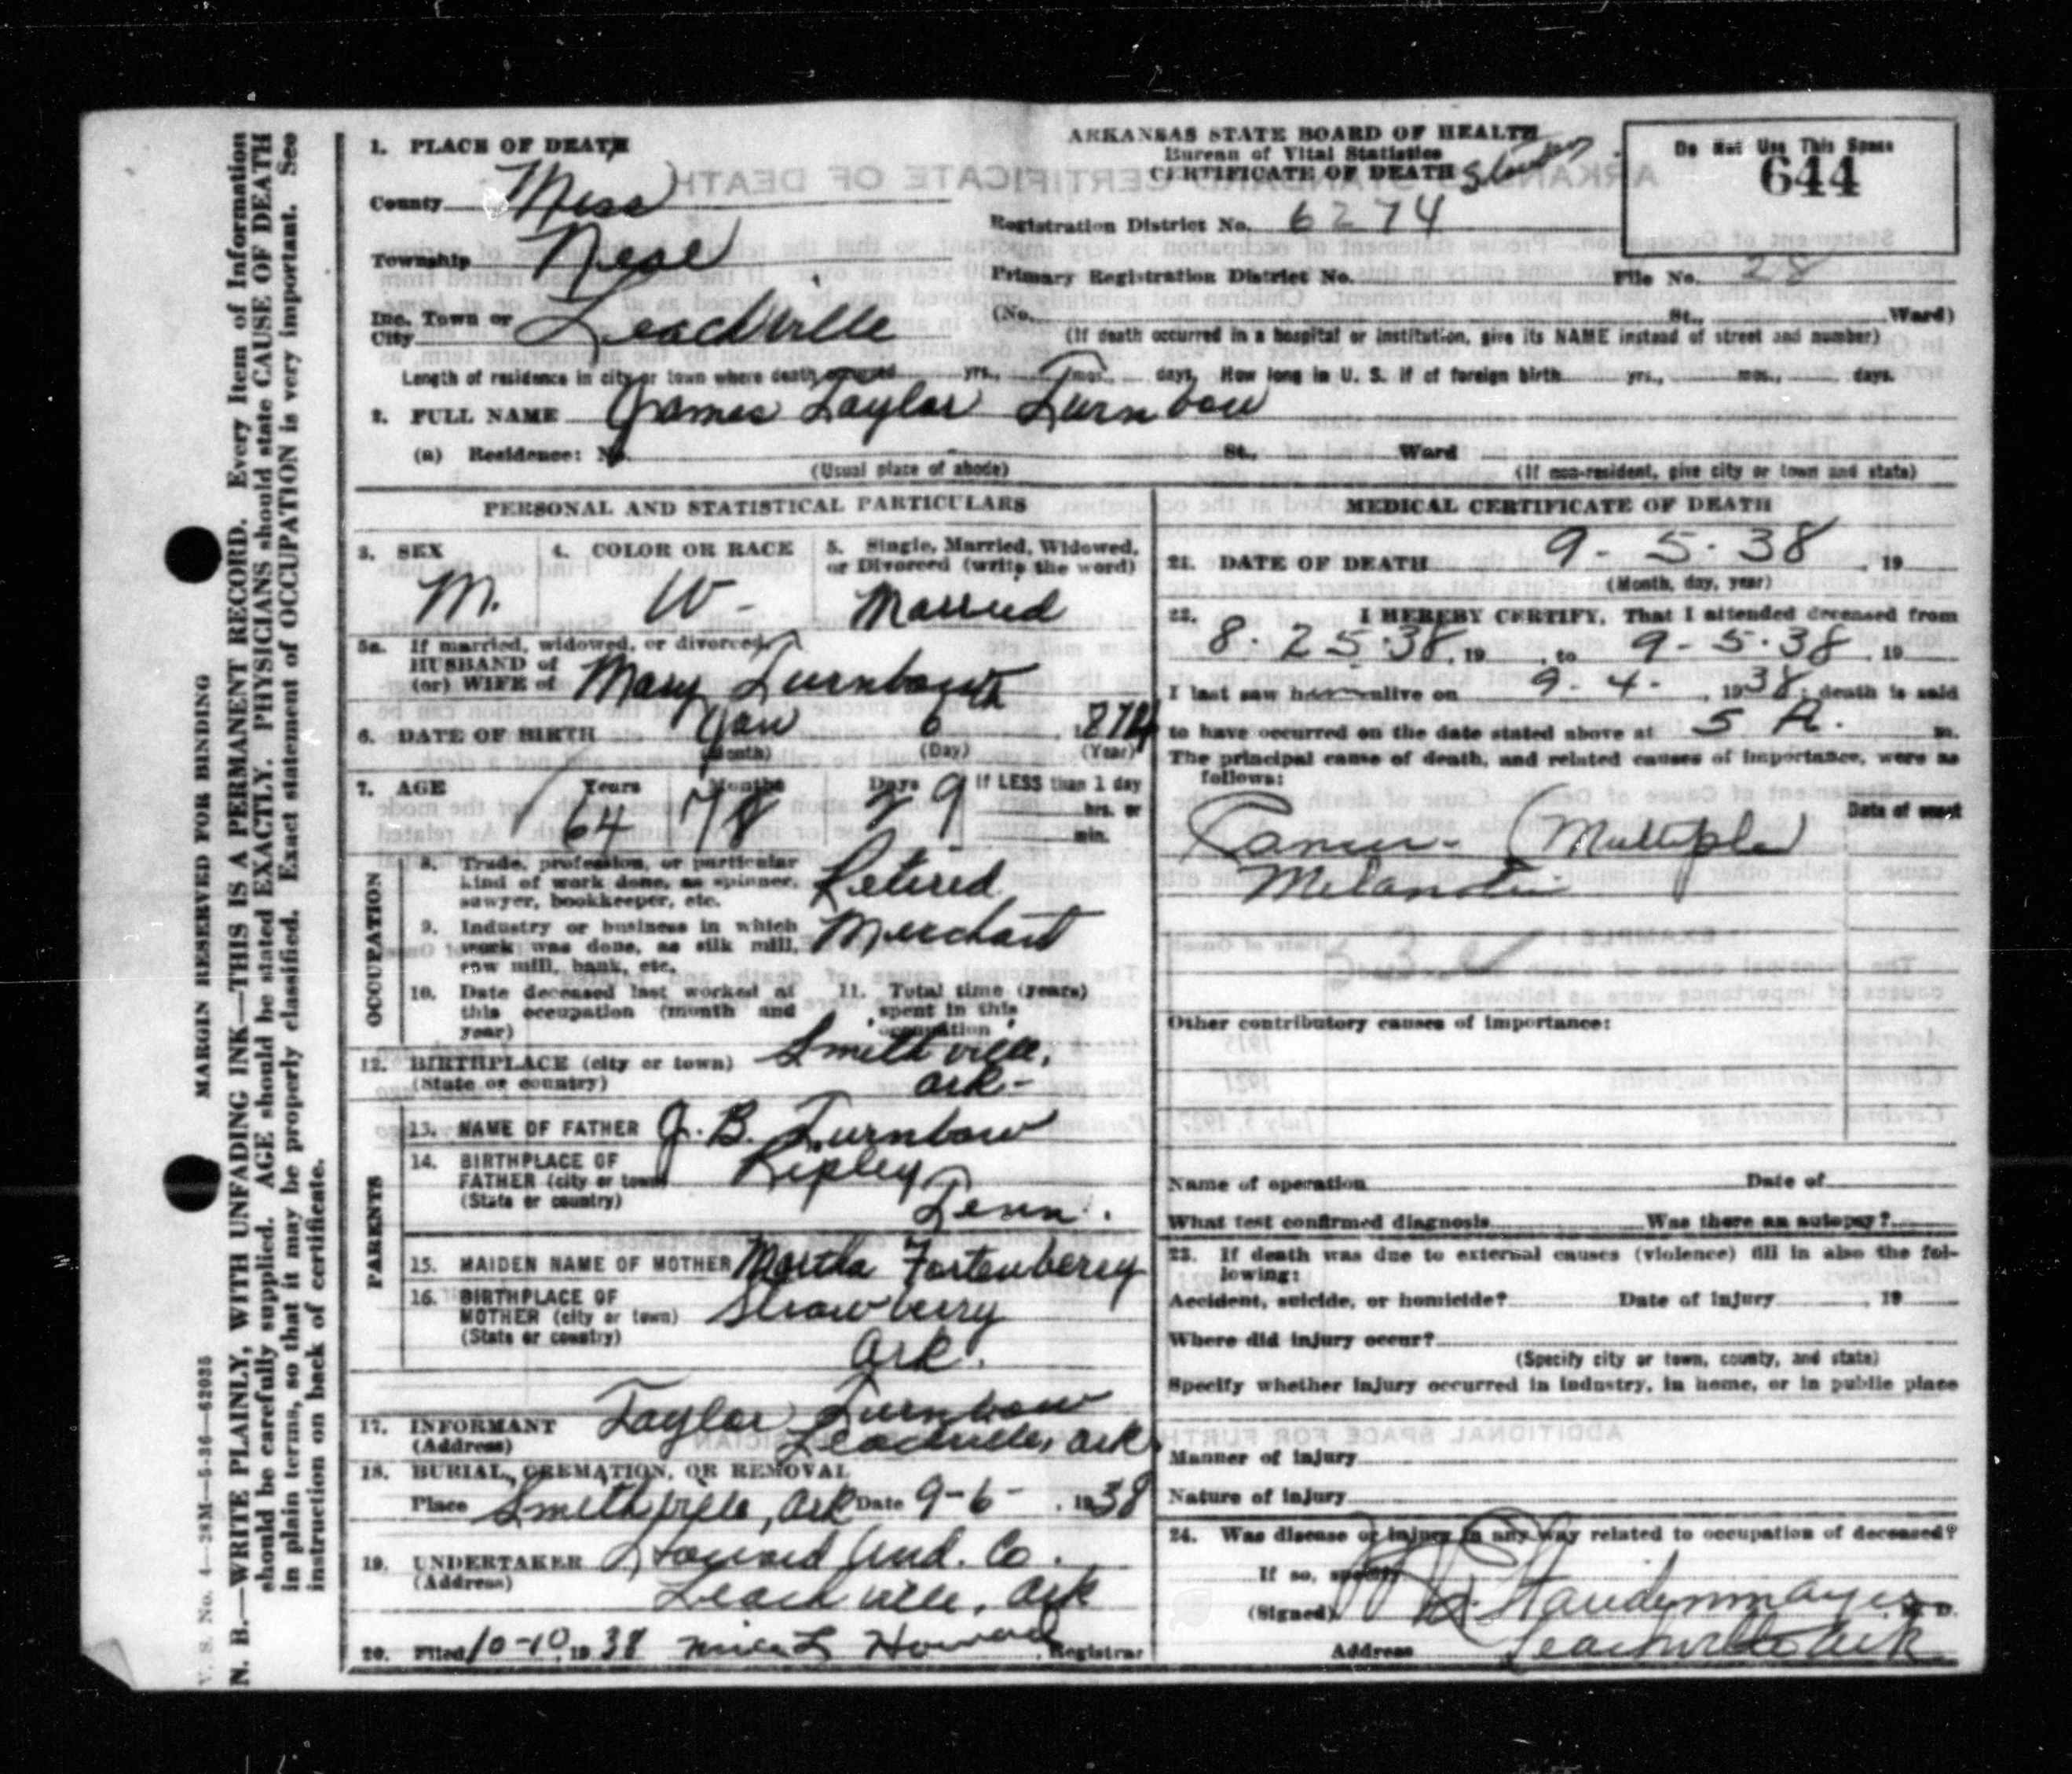 1. PLACE OF DEATH
County Miss
Township Neal
Inc. Town or City Leachville
ARKANSAS STATE BOARD OF HEALTH
Bureau of Vital Statistics
CERTIFICATE OF DEATH
Do Not Use This Space
644
Registration District No. 6274
Primary Registration District No. File No. 28
(No. St., Ward)
(If death occurred in a hospital or institution, give its NAME instead of street and number)
Length of residence in city or town where death occurred yrs., mos., days. How long in U. S. if of foreign birth yrs., mos., days.
2. FULL NAME James Taylor Turnbow
(a) Residence: No. St., Ward
(Usual place of abode) (If non-resident, give city or town and state)
PERSONAL AND STATISTICAL PARTICULARS
3. SEX M.
4. COLOR OR RACE W-
5. Single, Married, Widowed, or Divorced (write the word) Married
5a. If married, widowed, or divorced
HUSBAND of
(or) WIFE of Mary Turnbow
6. DATE OF BIRTH Jan 6, 1874
(Month) (Day) (Year)
7. AGE Years Months Days If LESS than 1 day
64 8 29 hrs. or
min.
OCCUPATION
8. Trade, profession, or particular kind of work done, as spinner, sawyer, bookkeeper, etc. Retired
9. Industry or business in which work was done, as silk mill, saw mill, bank, etc. Merchant
10. Date deceased last worked at this occupation (month and year)
11. Total time (years) spent in this occupation
12. BIRTHPLACE (city or town) Smithville,
(State or country) Ark-
PARENTS
13. NAME OF FATHER J. B. Turnbow
14. BIRTHPLACE OF FATHER (city or town) Ripley
(State or country) Tenn.
15. MAIDEN NAME OF MOTHER Martha Fortenberry
16. BIRTHPLACE OF MOTHER (city or town) Strawberry
(State or country) Ark.
17. INFORMANT Taylor Turnbow
(Address) Leachville, Ark.
18. BURIAL, CREMATION, OR REMOVAL
Place Smithville, Ark Date 9-6-, 1938
19. UNDERTAKER Howard Und. Co.
(Address) Leachville, Ark
20. Filed 10-10, 1938 Howard Registrar
MEDICAL CERTIFICATE OF DEATH
21. DATE OF DEATH 9-5-38, 19
(Month, day, year)
22. I HEREBY CERTIFY, That I attended deceased from
8-25-38, 19 , to 9-5-38, 19
I last saw him alive on 9-4-, 1938; death is said
to have occurred on the date stated above at 5 A. m.
The principal cause of death, and related causes of importance, were as follows:
Date of onset
Cancer - (Multiple)
53
Other contributory causes of importance:
Name of operation Date of
What test confirmed diagnosis Was there an autopsy?
23. If death was due to external causes (violence) fill in also the following:
Accident, suicide, or homicide? Date of injury , 19
Where did injury occur?
(Specify city or town, county, and state)
Specify whether injury occurred in industry, in home, or in public place
Manner of injury
Nature of injury
24. Was disease or injury in any way related to occupation of deceased?
If so, specify
(Signed) Staudenmayer M. D.
Address Leachville Ark
MARGIN RESERVED FOR BINDING
V. S. No. 4—28M—5-36—62035
N. B.—WRITE PLAINLY, WITH UNFADING INK—THIS IS A PERMANENT RECORD. Every Item of Information
should be carefully supplied. AGE should be stated EXACTLY. PHYSICIANS should state CAUSE OF DEATH
in plain terms, so that it may be properly classified. Exact statement of OCCUPATION is very important. See
instruction on back of certificate.